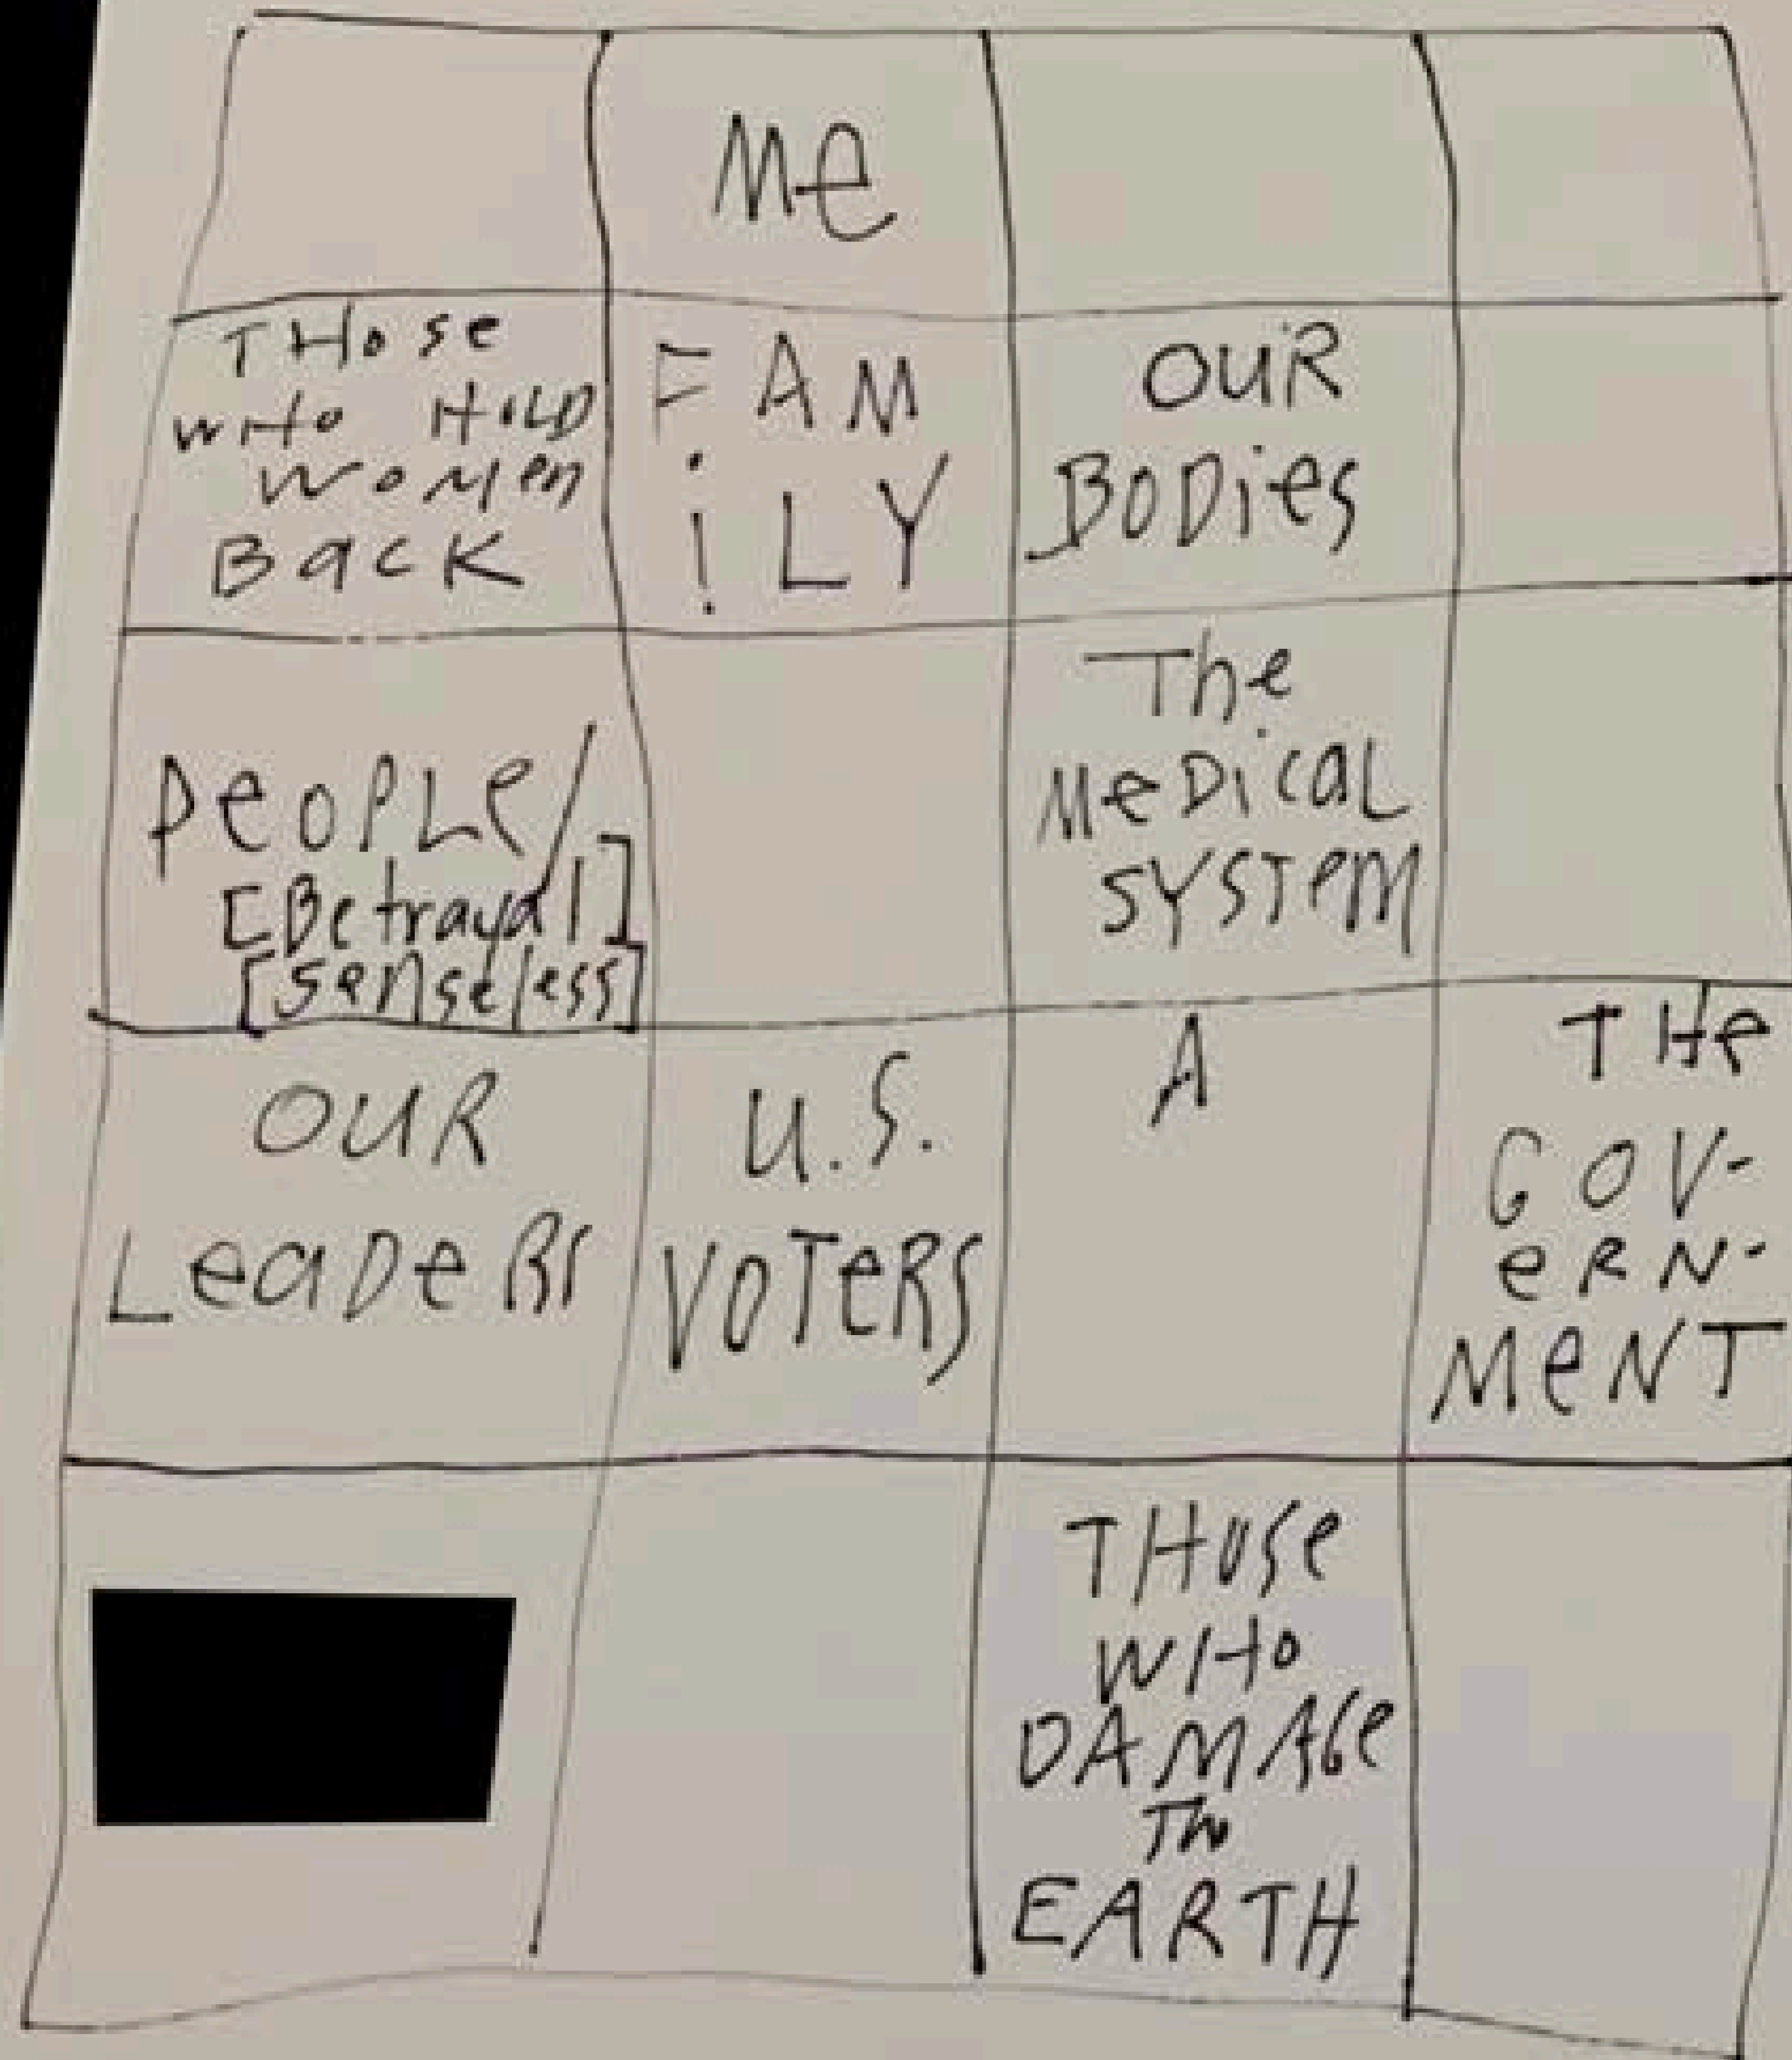 Me
THose
WHo HOLD
WoMen
Back
FAM
iLY
OUR
BODies
PeoPLe/
[Betrayal]
[senseless]
The
MeDicaL
SYSTeM
OUR
LeaDeRs
U.S.
VOTeRS
A
THe
GOV-
eRN-
MeNT
THOSe
WHo
DAMAGe
The
EARTH